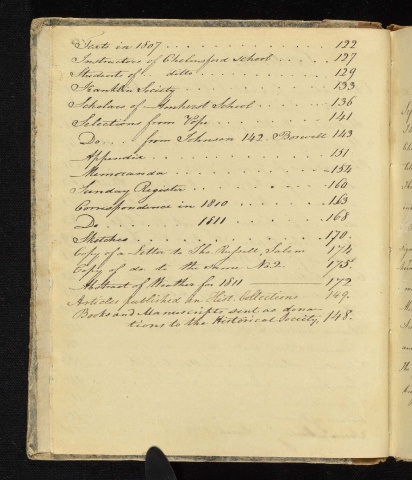 Facts in 1807 . . . . . . . . . . 122
Instructors of Chelmsford School . . . . 127
Students of ditto . . . . . . . . 129
Franklin Society . . . . . . . . 133
Scholars of Amherst School . . . . . 136
Selections from Pope . . . . . . . 141
Do . . . from Johnson 142. Boswell 143
Appendix . . . . . . . . . . 151
Memoranda . . . . . . . . . 154
Sunday Register . . . . . . . . 160
Correspondence in 1810 . . . . . . 163
Do 1811 . . . . . . 168
Sketches . . . . . . . . . . 170.
Copy of a Letter to Tho. Russell, Salem 174
Copy of do to the same No. 2. 175
Abstract of Weather for 1811 — 177
Articles published in Hist. Collections 149.
Books and Manuscripts sent as dona-
tions to the Historical Society, 148.